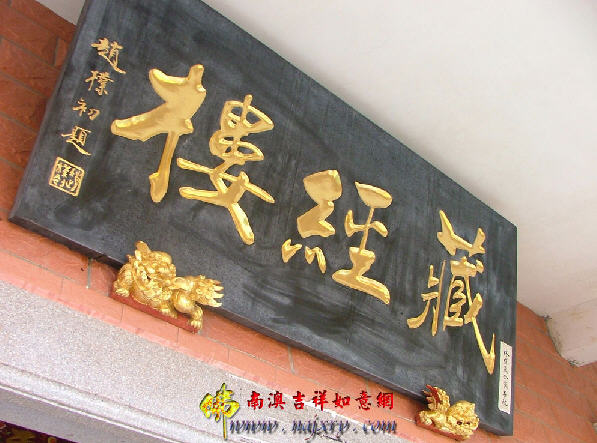 藏經樓
趙樸初題
佛
南澳吉祥如意網
www.najxry.com